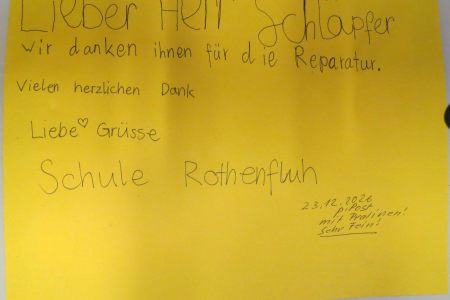 Lieber Herr Schläpfer
wir danken ihnen für die Reparatur.
Vielen herzlichen Dank
Liebe Grüsse
Schule Rothenfluh
23.12.2026
p. Post
mit Pralinen!
Sehr Fein!